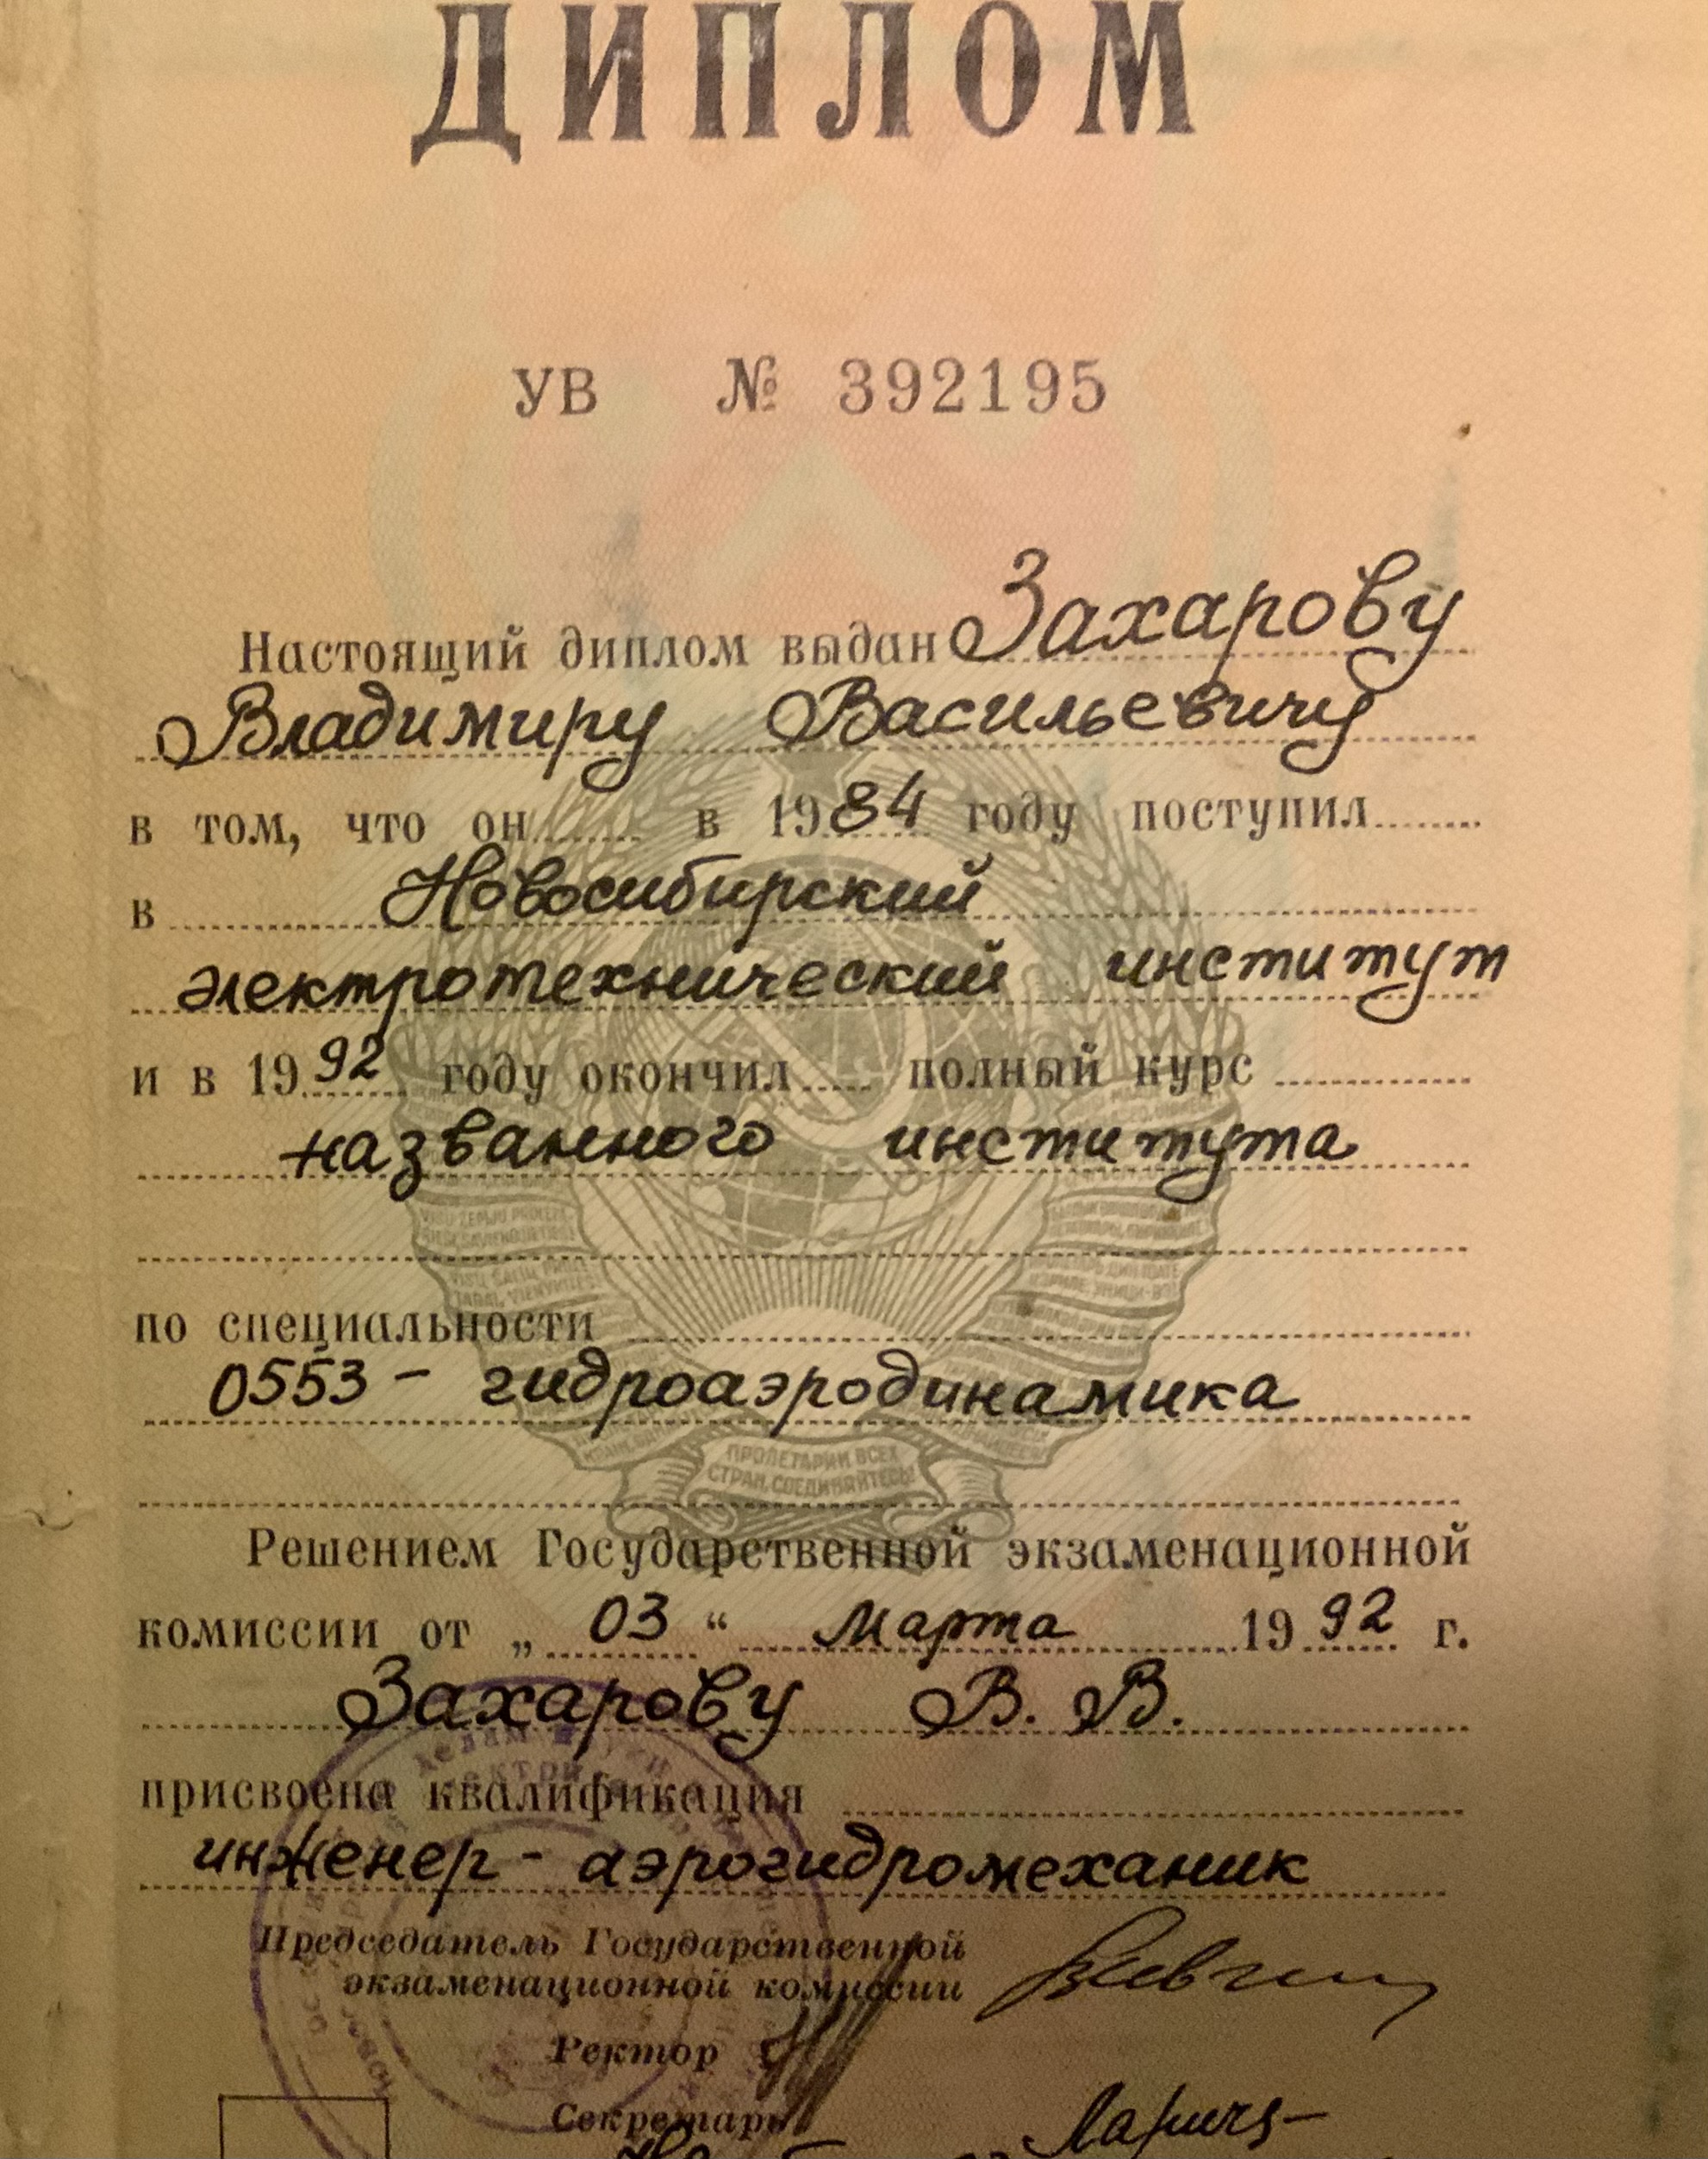 ДИПЛОМ
УВ № 392195
Настоящий диплом выдан Захарову
Владимиру Васильевичу
в том, что он в 1984 году поступил
в Новосибирский
электротехнический институт
и в 1992 году окончил полный курс
названного института
по специальности
0553 - гидроаэродинамика
ПРОЛЕТАРИИ ВСЕХ
СТРАН, СОЕДИНЯЙТЕСЬ!
Решением Государственной экзаменационной
комиссии от „03“ марта 1992 г.
Захарову В. В.
присвоена квалификация
инженер - аэрогидромеханик
Председатель Государственной
экзаменационной комиссии
Ректор
Секретарь